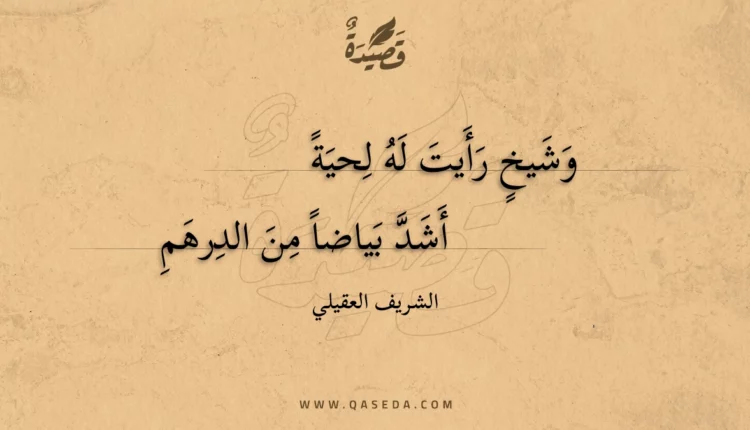 قَصِيدَةٌ
وَشَيخٍ رَأَيتَ لَهُ لِحيَةً
أَشَدَّ بَياضاً مِنَ الدِرهَمِ
الشريف العقيلي
WWW.QASEDA.COM